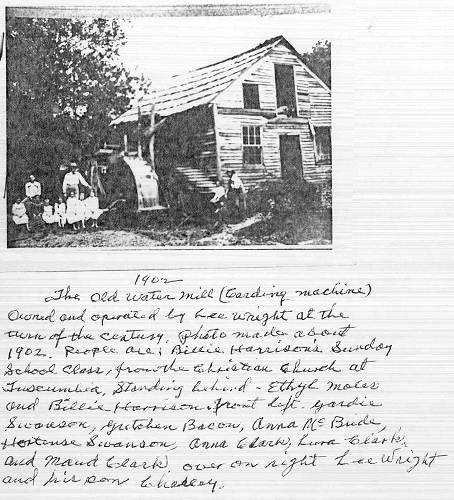 1902
The Old Water Mill (Carding machine)
Owned and operated by Lee Wright at the
turn of the century. Photo made about
1902. People are; Billie Harrison's Sunday
School Class, from the Christian Church at
Tuscumbia, Standing behind - Ethyl Moles
and Billie Harrison. front left. Gardie
Swanson, Gretchen Bacon, Anna McBude,
Hortense Swanson, Anna Clark, Lura Clark,
and Maud Clark. over on right Lee Wright
and his son Charley.